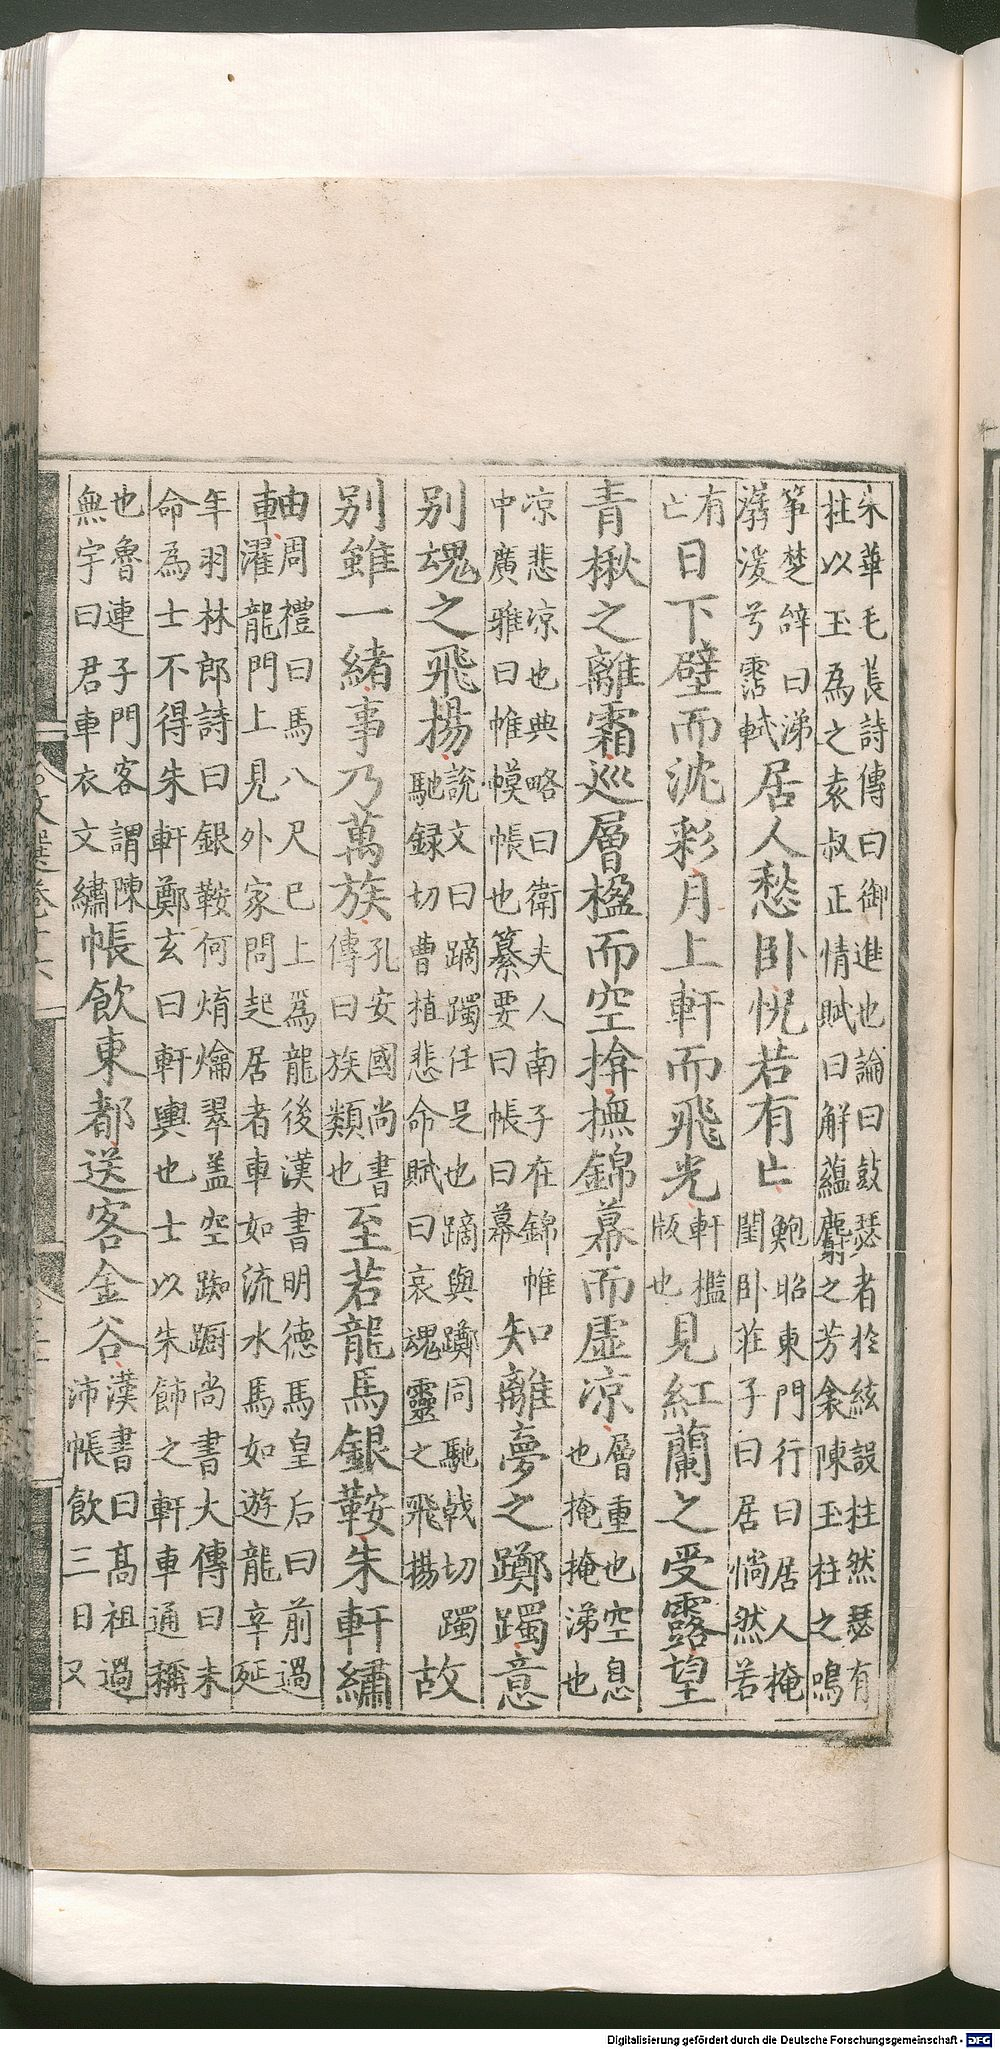 朱華毛萇詩傳曰御進也論曰鼓瑟者於絃設柱然瑟有
柱以玉為之袁叔正情賦曰解蘊麝之芳衾陳玉柱之鳴
筝楚辝曰涕居人愁卧怳若有亡鮑昭東門行曰居人掩
潺湲兮霑軾閨卧莊子曰居惝然若
有日下壁而沈彩月上軒而飛光軒檻見紅蘭之受露望
亡版也
青楸之離霜巡層楹而空揜撫錦幕而虛凉層重也空息
也掩掩涕也
凉悲凉也典略曰衛夫人南子在錦帷知離夢之躑躅意
中廣雅曰帷幙帳也纂要曰帳曰幕
别魂之飛揚說文曰蹢躅住足也蹢與躑同馳戟切躅故
馳録切曹植悲命賦曰哀魂靈之飛揚
别雖一緒事乃萬族孔安國尚書至若龍馬銀鞍朱軒繡
傳曰族類也
由周禮曰馬八尺已上為龍後漢書明德馬皇后曰前過
車濯龍門上見外家問起居者車如流水馬如遊龍辛延
年羽林郎詩曰銀鞍何煟爚翠盖空踟蹰尚書大傳曰未
命為士不得朱軒鄭玄曰軒輿也士以朱飾之軒車通稱
也魯連子門客謂陳帳飲東都送客金谷漢書曰髙祖過
無宇曰君車衣文繡沛帳飲三日又
Digitalisierung gefördert durch die Deutsche Forschungsgemeinschaft - DFG